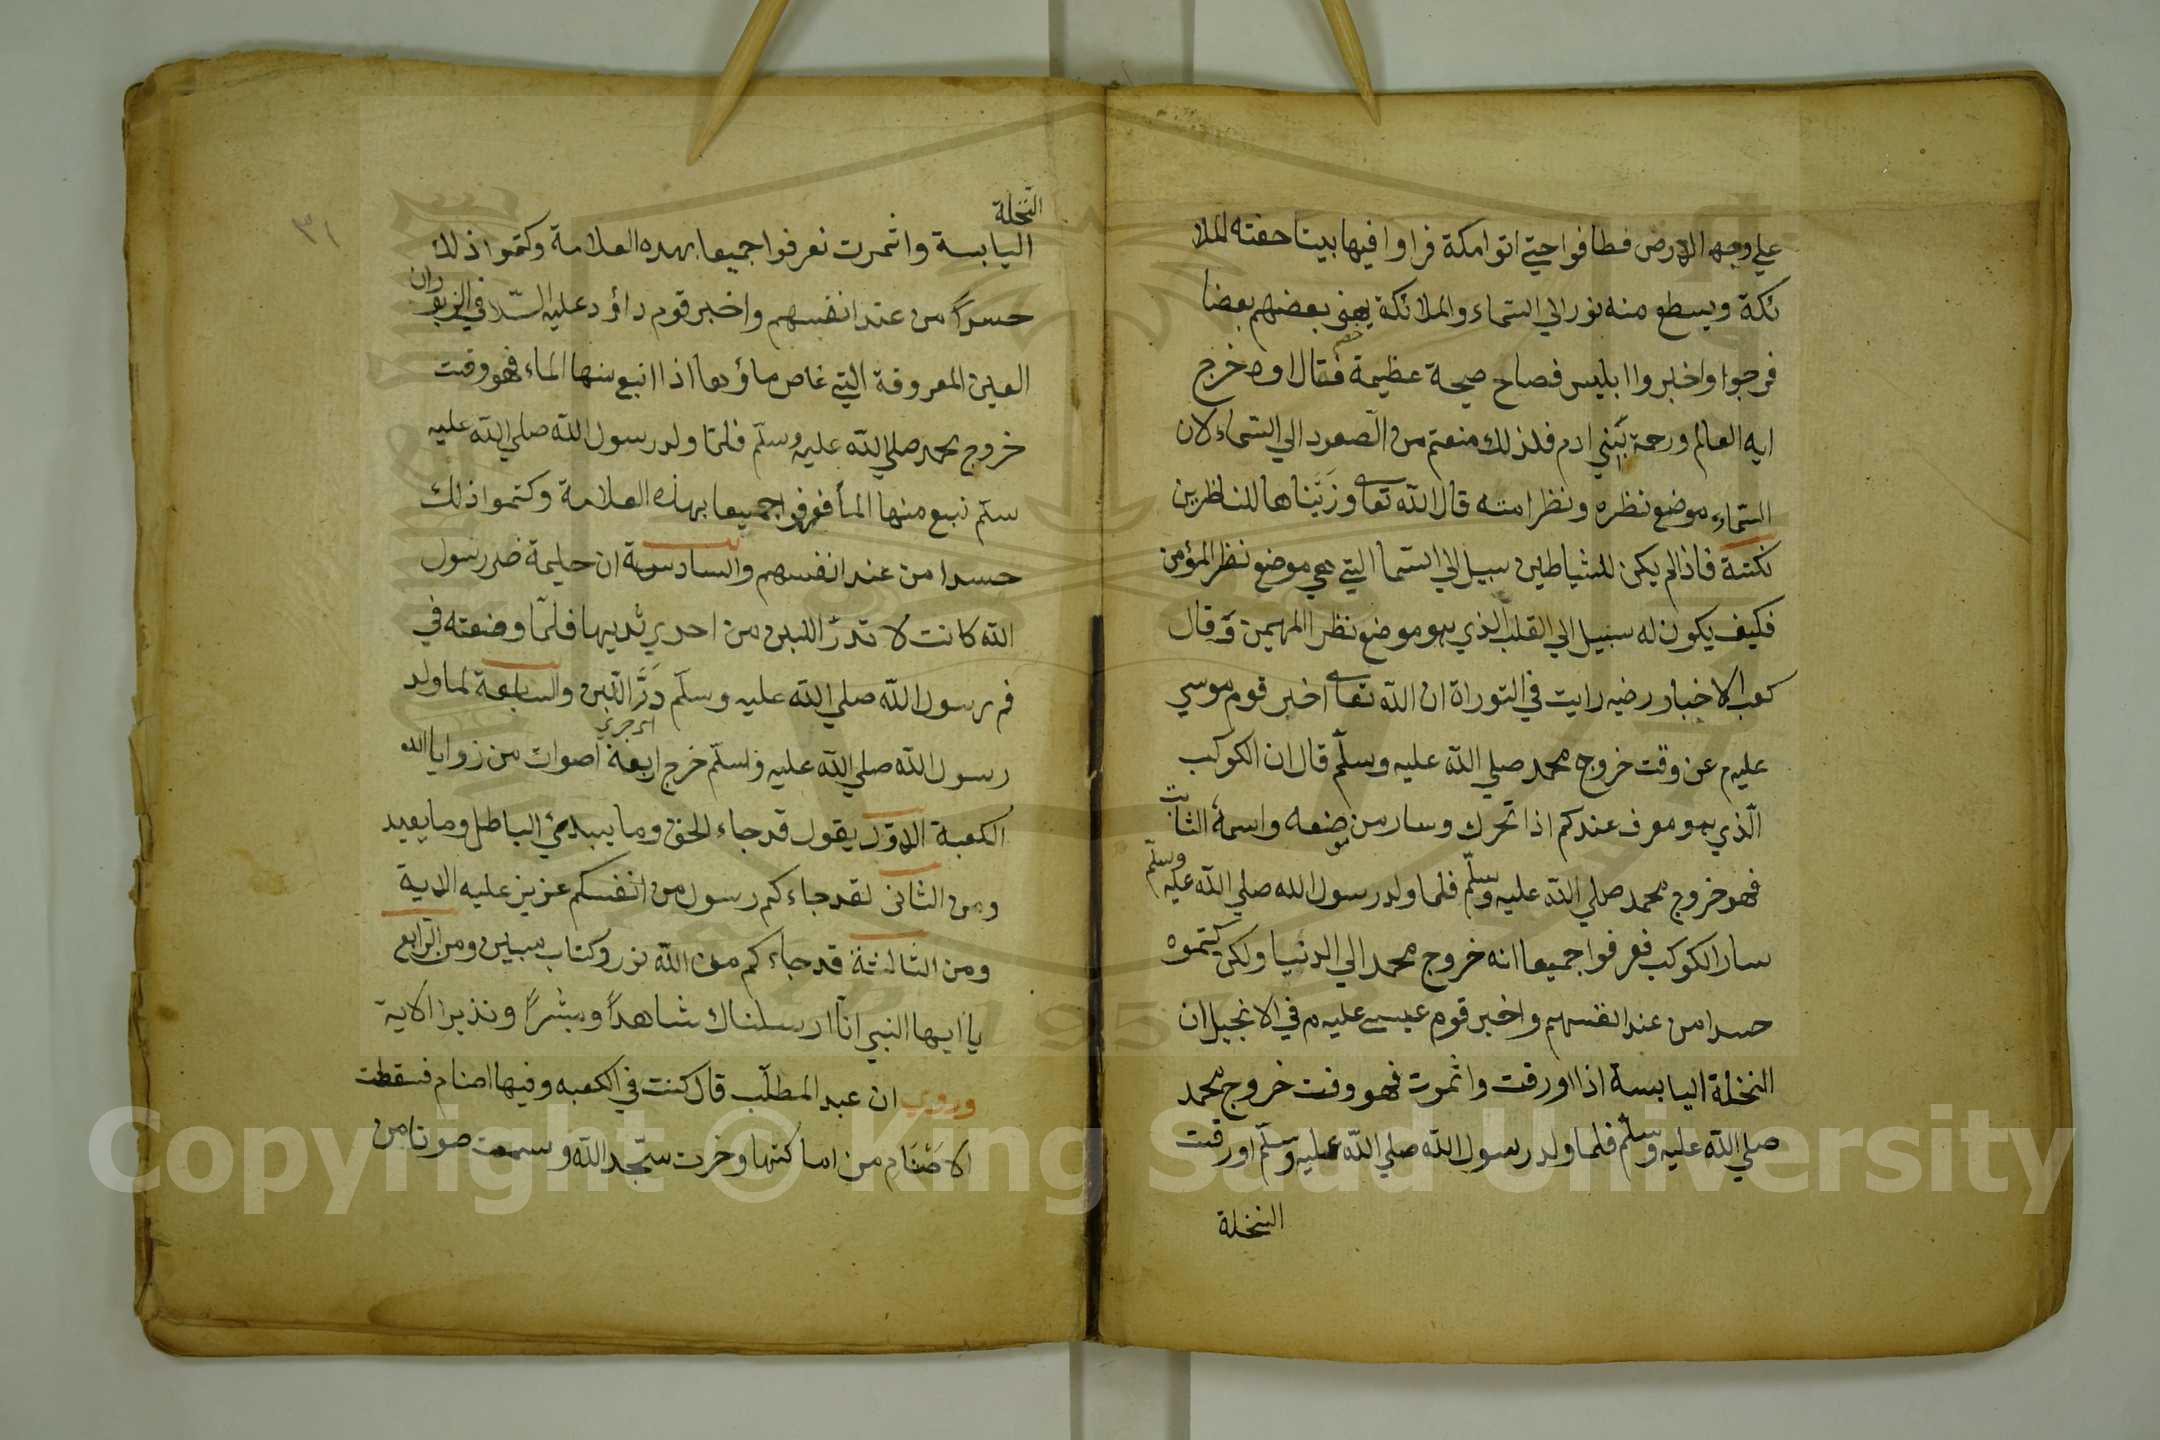 علي وجه الارض فطافوا حتي اتوا مكة فراوا فيها بيتا حفته الملا
ئكة ويسطع منه نور الي السّماء والملائكة يهنى بعضهم بعضا
فرجوا واخبروا ابليس فصاح صيحة عظيمة فقال اوه خرج
ايه العالم ورحمة بني ادم فلذلك منعتم من الصّعود الي السّماء لان
السّماء موضع نظره ونظر امته قال الله تعا وزَيّناها للناظرين
نكتة فاذا لم يكن للشياطين سبيل الي السّما التي هي موضع نظر المؤمن
فكيف يكون له سبيل الي القلب الذي هو موضع نظر المهيمن وَقال
كعب الاخبار رضيه رايت في التوراة ان الله تعا اخبر قوم موسي
عليه م عن وقت خروج محمد صلي الله عليه وسلّم قال ان الكوكب
الّذي هو معرف عندكم اذا تحرك وسار من موضعه واسمه الثابت
فهو خروج محمد صلي الله عليه وسلّم فلما ولد رسول الله صلي الله عليه وسلّم
سار الكوكب فعرفوا جميعا انه خروج محمد الي الدنيا ولكن كتموه
حسدا من عند انفسهم واخبر قوم عيسي عليه م في الانجيل ان
النخلة اليابسة اذا اورقت واثمرت فهو وقت خروج محمد
صلي الله عليه وسلّم فلما ولد رسول الله صلي الله عليه وسلّم اورقت
النخلة
٣١
النّخلة
اليابسة واثمرت نعرفوا جميعا بهده العلامة وكتموا ذلك
حسداً من عند انفسهم واخبر قوم داؤد عليه السّلا في الزبور ان
العين المعروفة التي غاص ماؤها اذا انبع منها الماء فهو وقت
خروج محمد صلي الله عليه وسلّم فلمّا ولد رسول الله صلي الله عليه
سلّم نبع منها المأ فعرفوا جميعا بهذه العلامة وكتموا ذلك
حسدا من عند انفسهم والسادسة ان حليمة ضر رسول
الله كانت لا تدرّ اللبن من احدي ثدييها فلمّا وضعته في
فم رسول الله صلي الله عليه وسلّم دَرَّ اللبن والسابعة لما ولد
رسول الله صلي الله عليه وسلّم خرج اربعة اصوات من زوايا الله
الكعبة الاوّل يقول قد جاء الحق وما يبدئ الباطل وما يعيد
ومن الثانى لقد جاءكم رسول من انفسكم عزيز عليه الاية
ومن الثالثة قد جاءكم من الله نور وكتاب مبين ومن الرّابع
يا ايها النبي انّا ارسلناك شاهداً ومبشّراً ونذيرا الاية
وروي ان عبد المطلّب قال كنت في الكعبه وفيها اصنام فسقطت
الاصْنَام من اماكنها وخرت سجّد الله وسمعت صوتا من
Copyright © King Saud University
1957